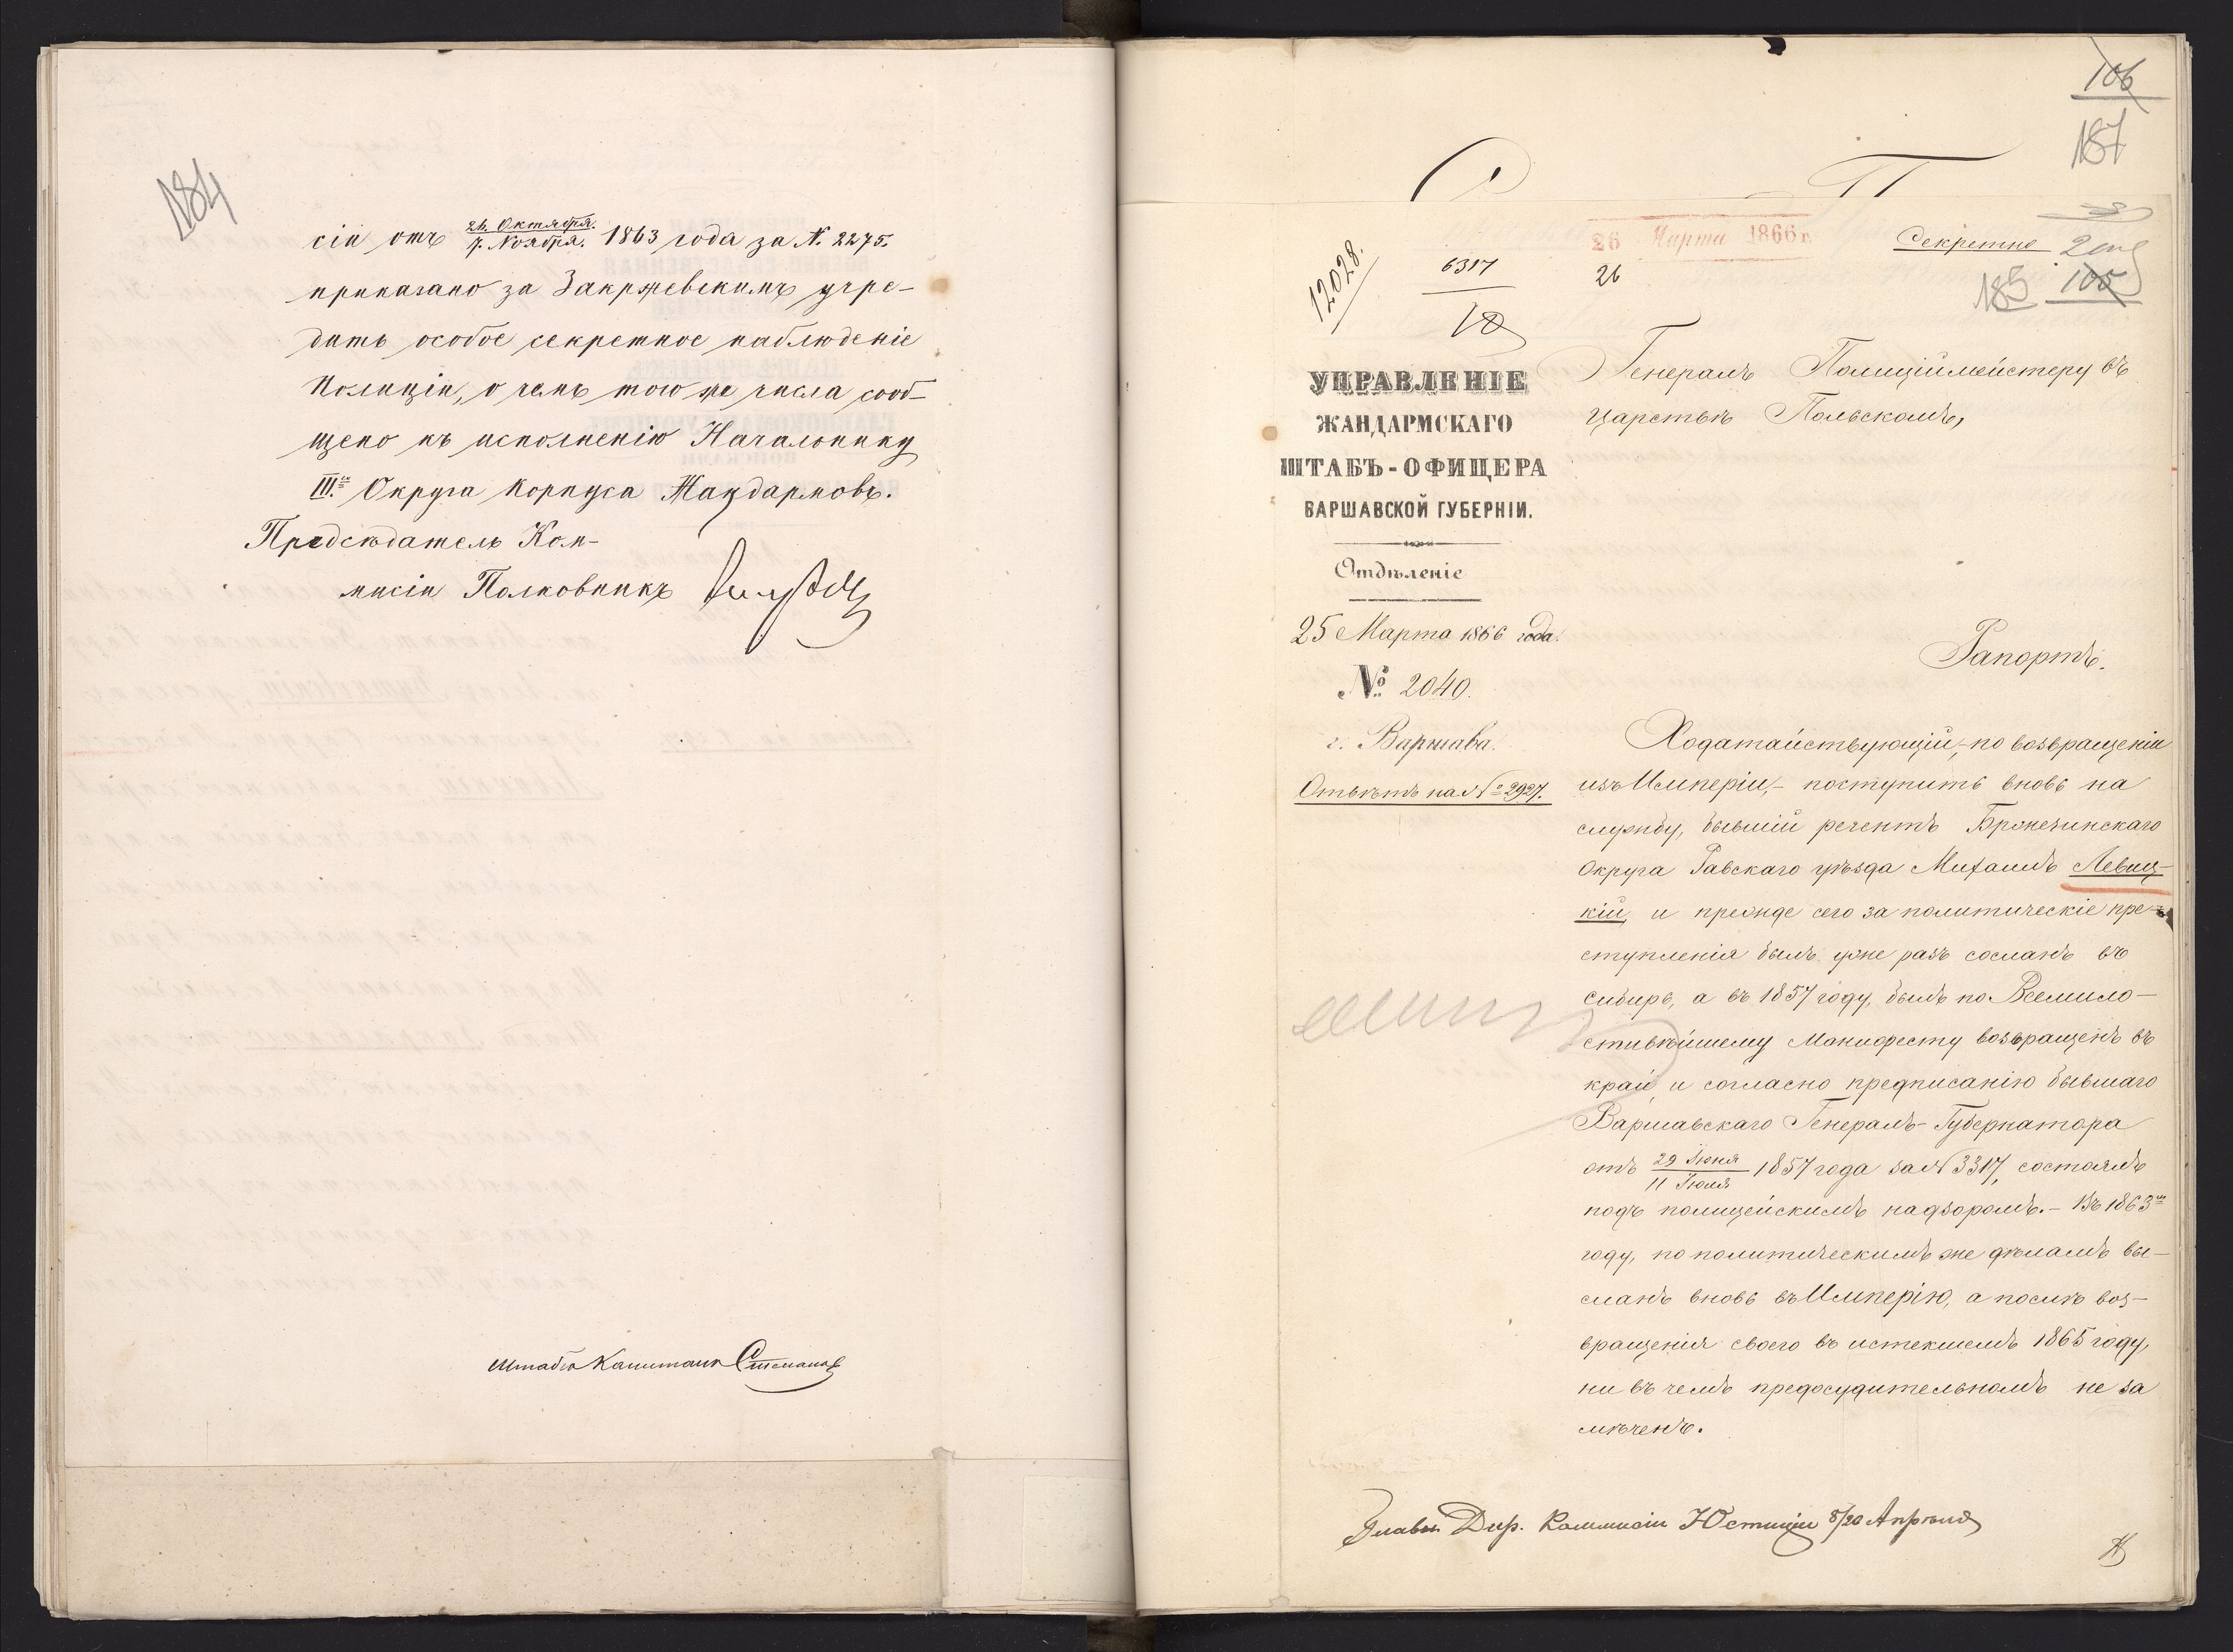 184
сіи отъ 26. Октября./7. Ноября. 1863 года за №. 2275.
приказано за Закржевскимъ учре-
дить особое секретное наблюденіе
Полиціи, о чемъ того же числа сооб-
щено къ исполненію Начальнику
III.го Округа Корпуса Жандармовъ.
Предсѣдатель Ком-
мисіи Полковникъ
Штабсъ Капитанъ
106
187
26 Марта 1866 г.
26
Секретно
185 105
12028.
6317
УПРАВЛЕНІЕ
ЖАНДАРМСКАГО
ШТАБЪ-ОФИЦЕРА
ВАРШАВСКОЙ ГУБЕРНІИ.
Отдѣленіе
25 Марта 1866 года.
№ 2040.
г. Варшава.
Отвѣтъ на № 2927.
Генералъ Полиціймейстеру въ
Царствѣ Польскомъ,
Рапортъ.
Ходатайствующій,- по возвращеніи
изъ Имперіи,- поступить вновь на
службу, бывшій регентъ Бржензинскаго
Округа Равскаго уѣзда Михаилъ Левиц-
кій, и прежде сего за политическіе пре-
ступленія былъ уже разъ сосланъ въ
Сибирь, а въ 1857 году, былъ по Всемило-
стивѣйшему Манифесту возвращенъ въ
край, и согласно предписанію бывшаго
Варшавскаго Генералъ-Губернатора
отъ 29 Іюня/11 Іюля 1857 года за № 3317, состоялъ
подъ полицейскимъ надзоромъ.- Въ 1863м
году, по политическимъ же дѣламъ вы-
сланъ вновь въ Имперію, а послѣ воз-
вращенія своего въ истекшемъ 1865 году,
ни въ чемъ предосудительномъ не за
мѣченъ.
Главн. Дир. Коммисіи Юстиціи 8/20 Апрѣля